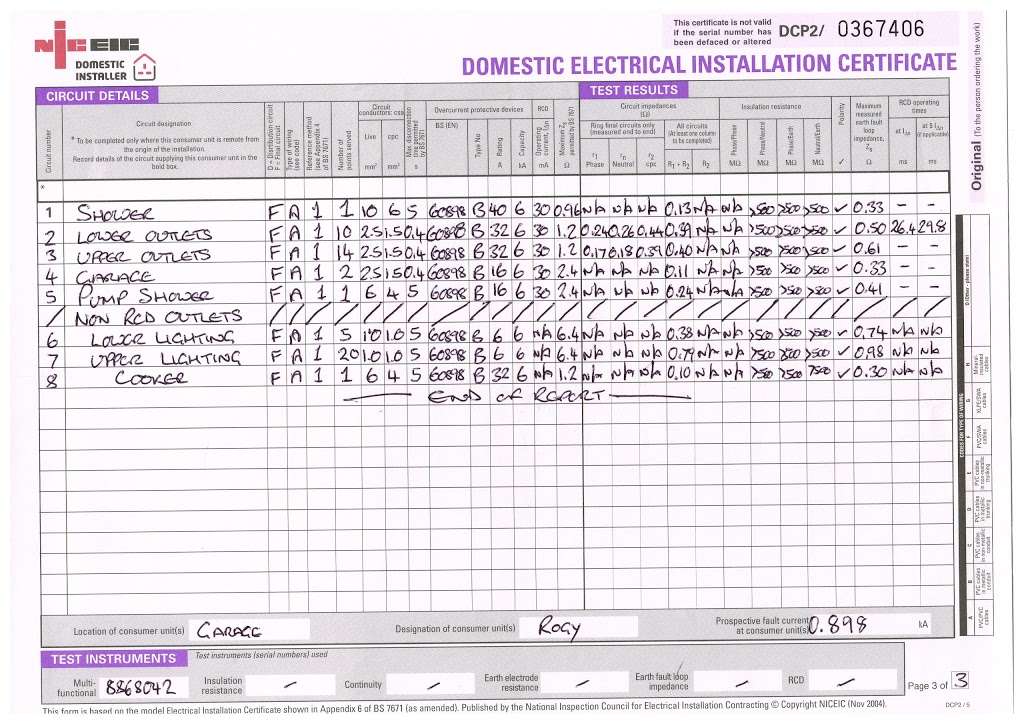 This certificate is not valid
if the serial number has
been defaced or altered
DCP2/ 0367406
NICEIC
DOMESTIC
INSTALLER
DOMESTIC ELECTRICAL INSTALLATION CERTIFICATE
Original (To the person ordering the work)
CIRCUIT DETAILS
TEST RESULTS
Circuit number
Circuit designation
* To be completed only where this consumer unit is remote from
the origin of the installation.
Record details of the circuit supplying this consumer unit in the
bold box.
D = Distribution circuit
F = Final circuit
Type of wiring
(see code)
Reference method
(see Appendix 4
of BS 7671)
Number of
points served
Circuit
conductors: csa
Live
mm²
cpc
mm²
Max. disconnection
time permitted
by BS 7671
s
Overcurrent protective devices
BS (EN)
Type No
Rating
A
Capacity
kA
RCD
Operating
current, IΔn
mA
Maximum Zs
permitted by BS 7671
Ω
Circuit impedances
(Ω)
Ring final circuits only
(measured end to end)
r1
Phase
rn
Neutral
r2
cpc
All circuits
(At least one column
to be completed)
R1 + R2
R2
Insulation resistance
Phase/Phase
MΩ
Phase/Neutral
MΩ
Phase/Earth
MΩ
Neutral/Earth
MΩ
Polarity
✓
Maximum
measured
earth fault
loop
impedance,
Zs
Ω
RCD operating
times
at IΔn
ms
at 5 IΔn
(if applicable)
ms
*
1 SHOWER F A 1 1 10 6 5 60898 B 40 6 30 0.96 N/A N/A N/A 0.13 N/A N/A >500 >500 >500 ✓ 0.33 – –
2 LOWER OUTLETS F A 1 10 2.5 1.5 0.4 60898 B 32 6 30 1.2 0.24 0.26 0.44 0.39 N/A N/A >500 >500 >500 ✓ 0.50 26.4 29.8
3 UPPER OUTLETS F A 1 14 2.5 1.5 0.4 60898 B 32 6 30 1.2 0.17 0.18 0.39 0.40 N/A N/A >500 >500 >500 ✓ 0.61 – –
4 GARAGE F A 1 2 2.5 1.5 0.4 60898 B 16 6 30 2.4 N/A N/A N/A 0.11 N/A N/A >500 >500 >500 ✓ 0.33 – –
5 PUMP SHOWER F A 1 1 6 4 5 60898 B 16 6 30 2.4 N/A N/A N/A 0.24 N/A N/A >500 >500 >500 ✓ 0.41 – –
/ NON RCD OUTLETS / / / / / / / / / / / / / / / / / / / / / / / / /
6 LOWER LIGHTING F A 1 5 1.0 1.0 5 60898 B 6 6 N/A 6.4 N/A N/A N/A 0.38 N/A N/A >500 >500 >500 ✓ 0.74 N/A N/A
7 UPPER LIGHTING F A 1 20 1.0 1.0 5 60898 B 6 6 N/A 6.4 N/A N/A N/A 0.79 N/A N/A >500 >500 >500 ✓ 0.98 N/A N/A
8 COOKER F A 1 1 6 4 5 60898 B 32 6 N/A 1.2 N/A N/A N/A 0.10 N/A N/A >500 >500 >500 ✓ 0.30 N/A N/A
END OF REPORT
CODES FOR TYPE OF WIRING
O (Other - please state)
H Mineral-insulated cables
G XLPE/SWA cables
F PVC/SWA cables
E PVC cables in non-metallic trunking
D PVC cables in metallic trunking
C PVC cables in non-metallic conduit
B PVC cables in metallic conduit
A PVC/PVC cables
Location of consumer unit(s) GARAGE
Designation of consumer unit(s)
Prospective fault current
at consumer unit(s) 0.898 kA
TEST INSTRUMENTS
Test instruments (serial numbers) used
Multi-
functional 8868042
Insulation
resistance –
Continuity –
Earth electrode
resistance –
Earth fault loop
impedance –
RCD –
Page 3 of 3
This form is based on the model Electrical Installation Certificate shown in Appendix 6 of BS 7671 (as amended). Published by the National Inspection Council for Electrical Installation Contracting © Copyright NICEIC (Nov 2004).
DCP2 / 5